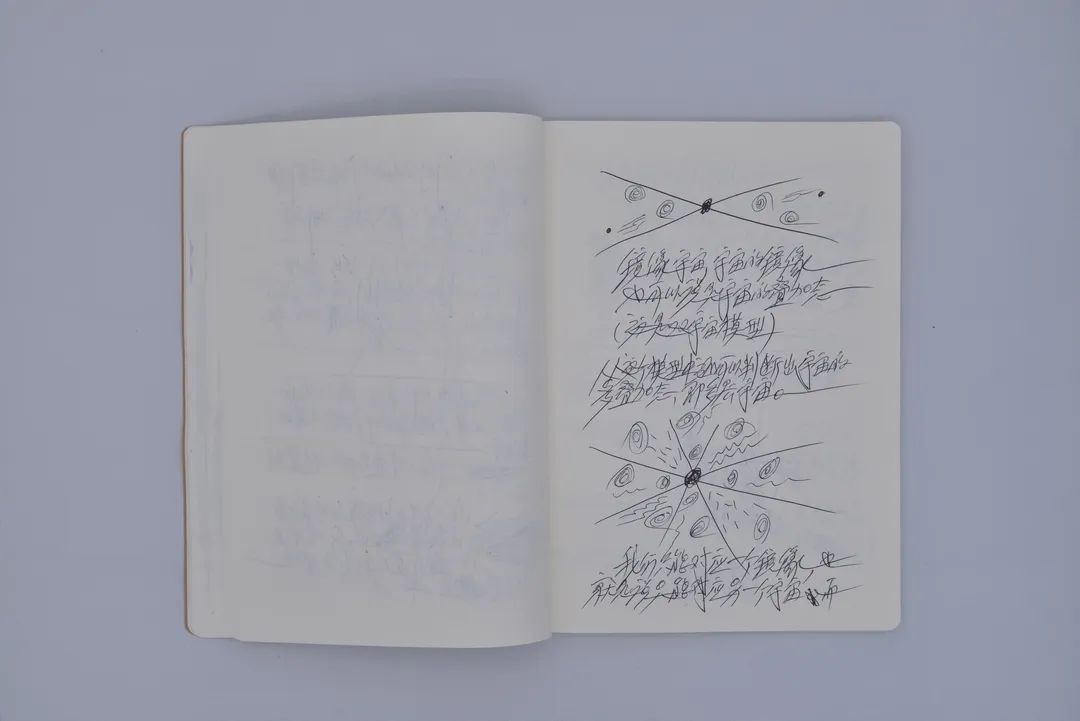 镜像宇宙,宇宙的镜像
也可以说是宇宙的叠加态
(这是双宇宙模型)
从这个模型中还可以判断出宇宙的
多叠加态,即多云宇宙。
我们只能对应一个镜像,也
就是说只能对应另一个宇宙,而